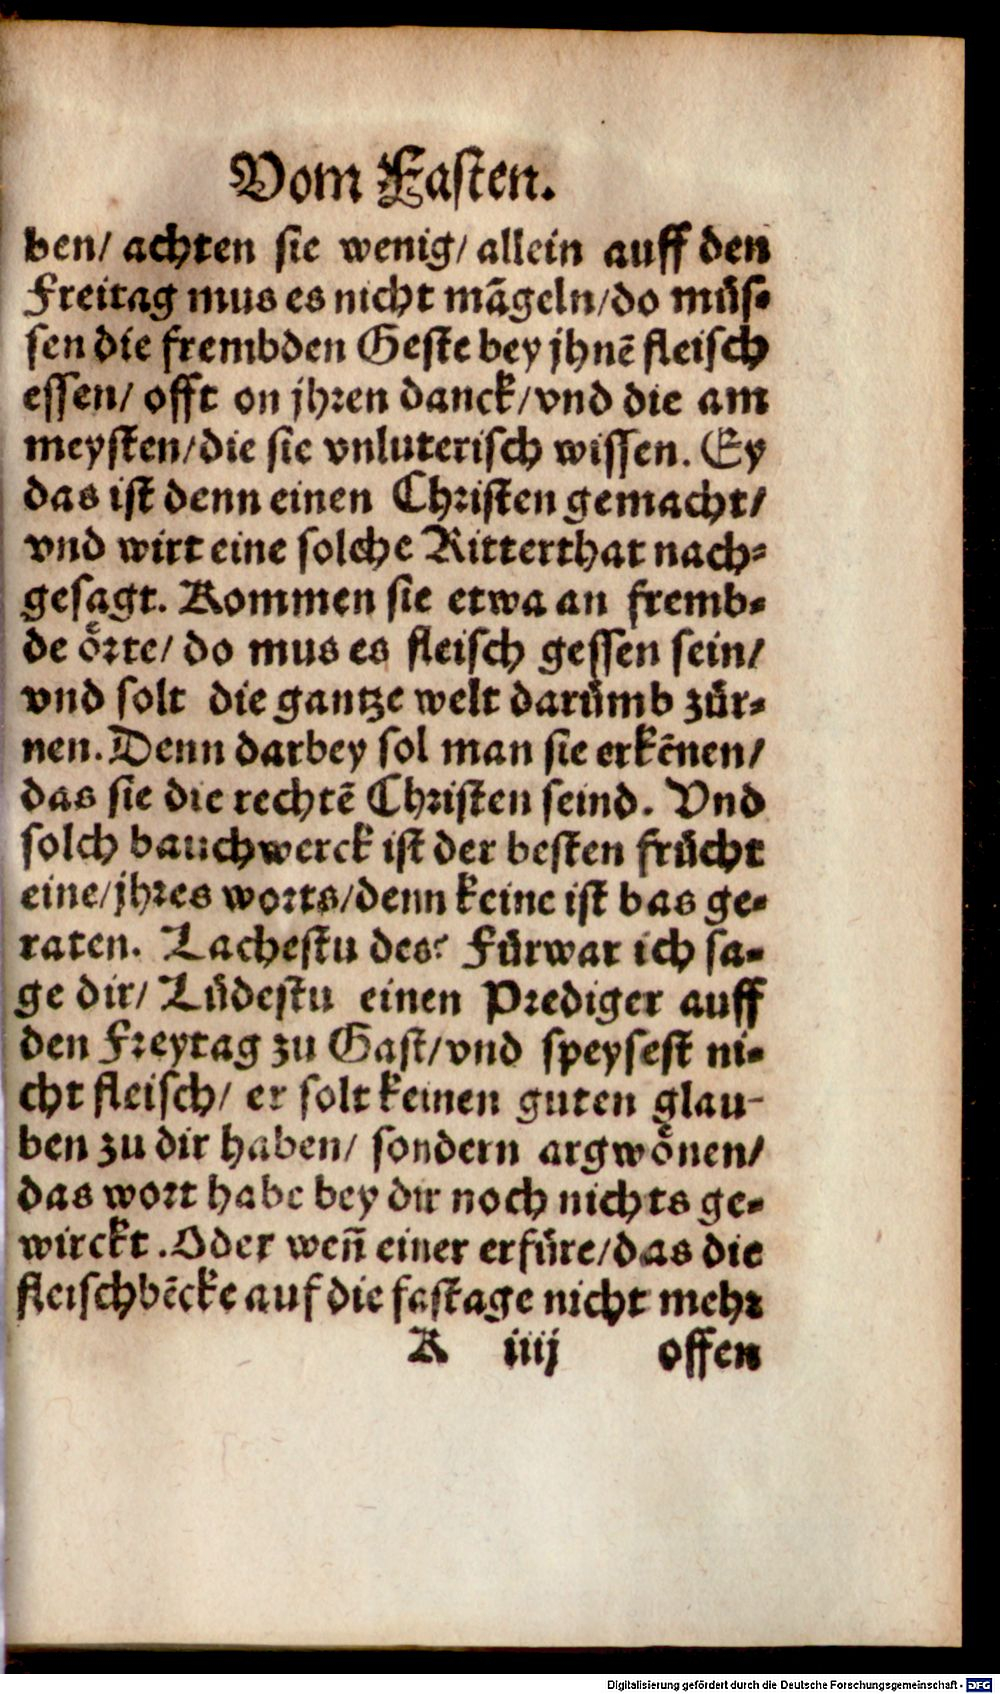 Vom Fasten.
ben/ achten sie wenig/ allein auff den
Freitag mus es nicht mãgeln/do müs-
sen die frembden Geste bey jhnẽ fleisch
essen/ offt on jhren danck/vnd die am
meysten/die sie vnluterisch wissen. Ey
das ist denn einen Christen gemacht/
vnd wirt eine solche Ritterthat nach-
gesagt. Kommen sie etwa an fremb-
de oͤrte/ do mus es fleisch gessen sein/
vnd solt die gantze welt darümb zür-
nen. Denn darbey sol man sie erkẽnen/
das sie die rechtẽ Christen seind. Vnd
solch bauchwerck ist der besten frücht
eine/jhres worts/denn keine ist bas ge-
raten. Lachestu des? Fürwar ich sa-
ge dir/ Lüdestu einen Prediger auff
den Freytag zu Gast/vnd speysest ni-
cht fleisch/ er solt keinen guten glau-
ben zu dir haben/ sondern argwoͤnen/
das wort habe bey dir noch nichts ge-
wirckt. Oder weñ einer erfüre/das die
fleischbẽcke auf die fastage nicht mehr
K iiij offen
Digitalisierung gefördert durch die Deutsche Forschungsgemeinschaft - DFG